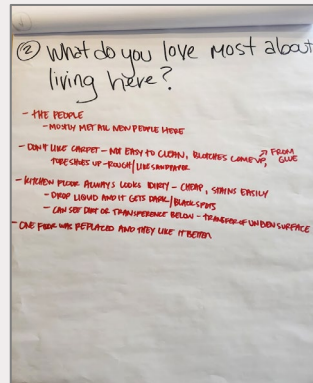 ② What do you love most about
living here?
- THE PEOPLE
- MOSTLY MET ALL NEW PEOPLE HERE
- DON'T LIKE CARPET - NOT EASY TO CLEAN, BLOTCHES COME UP, ↗ FROM GLUE
SHOES UP - ROUGH/LIKE SANDPAPER
- KITCHEN FLOOR ALWAYS LOOKS DIRTY - CHEAP, STAINS EASILY
- DROP LIQUID AND IT GETS DARK/BLACK SPOTS
- CAN SEE DIRT OR TRANSFERENCE BELOW - TRANSFER OF UNDER SURFACE
- ONE FLOOR WAS REPLACED AND THEY LIKE IT BETTER